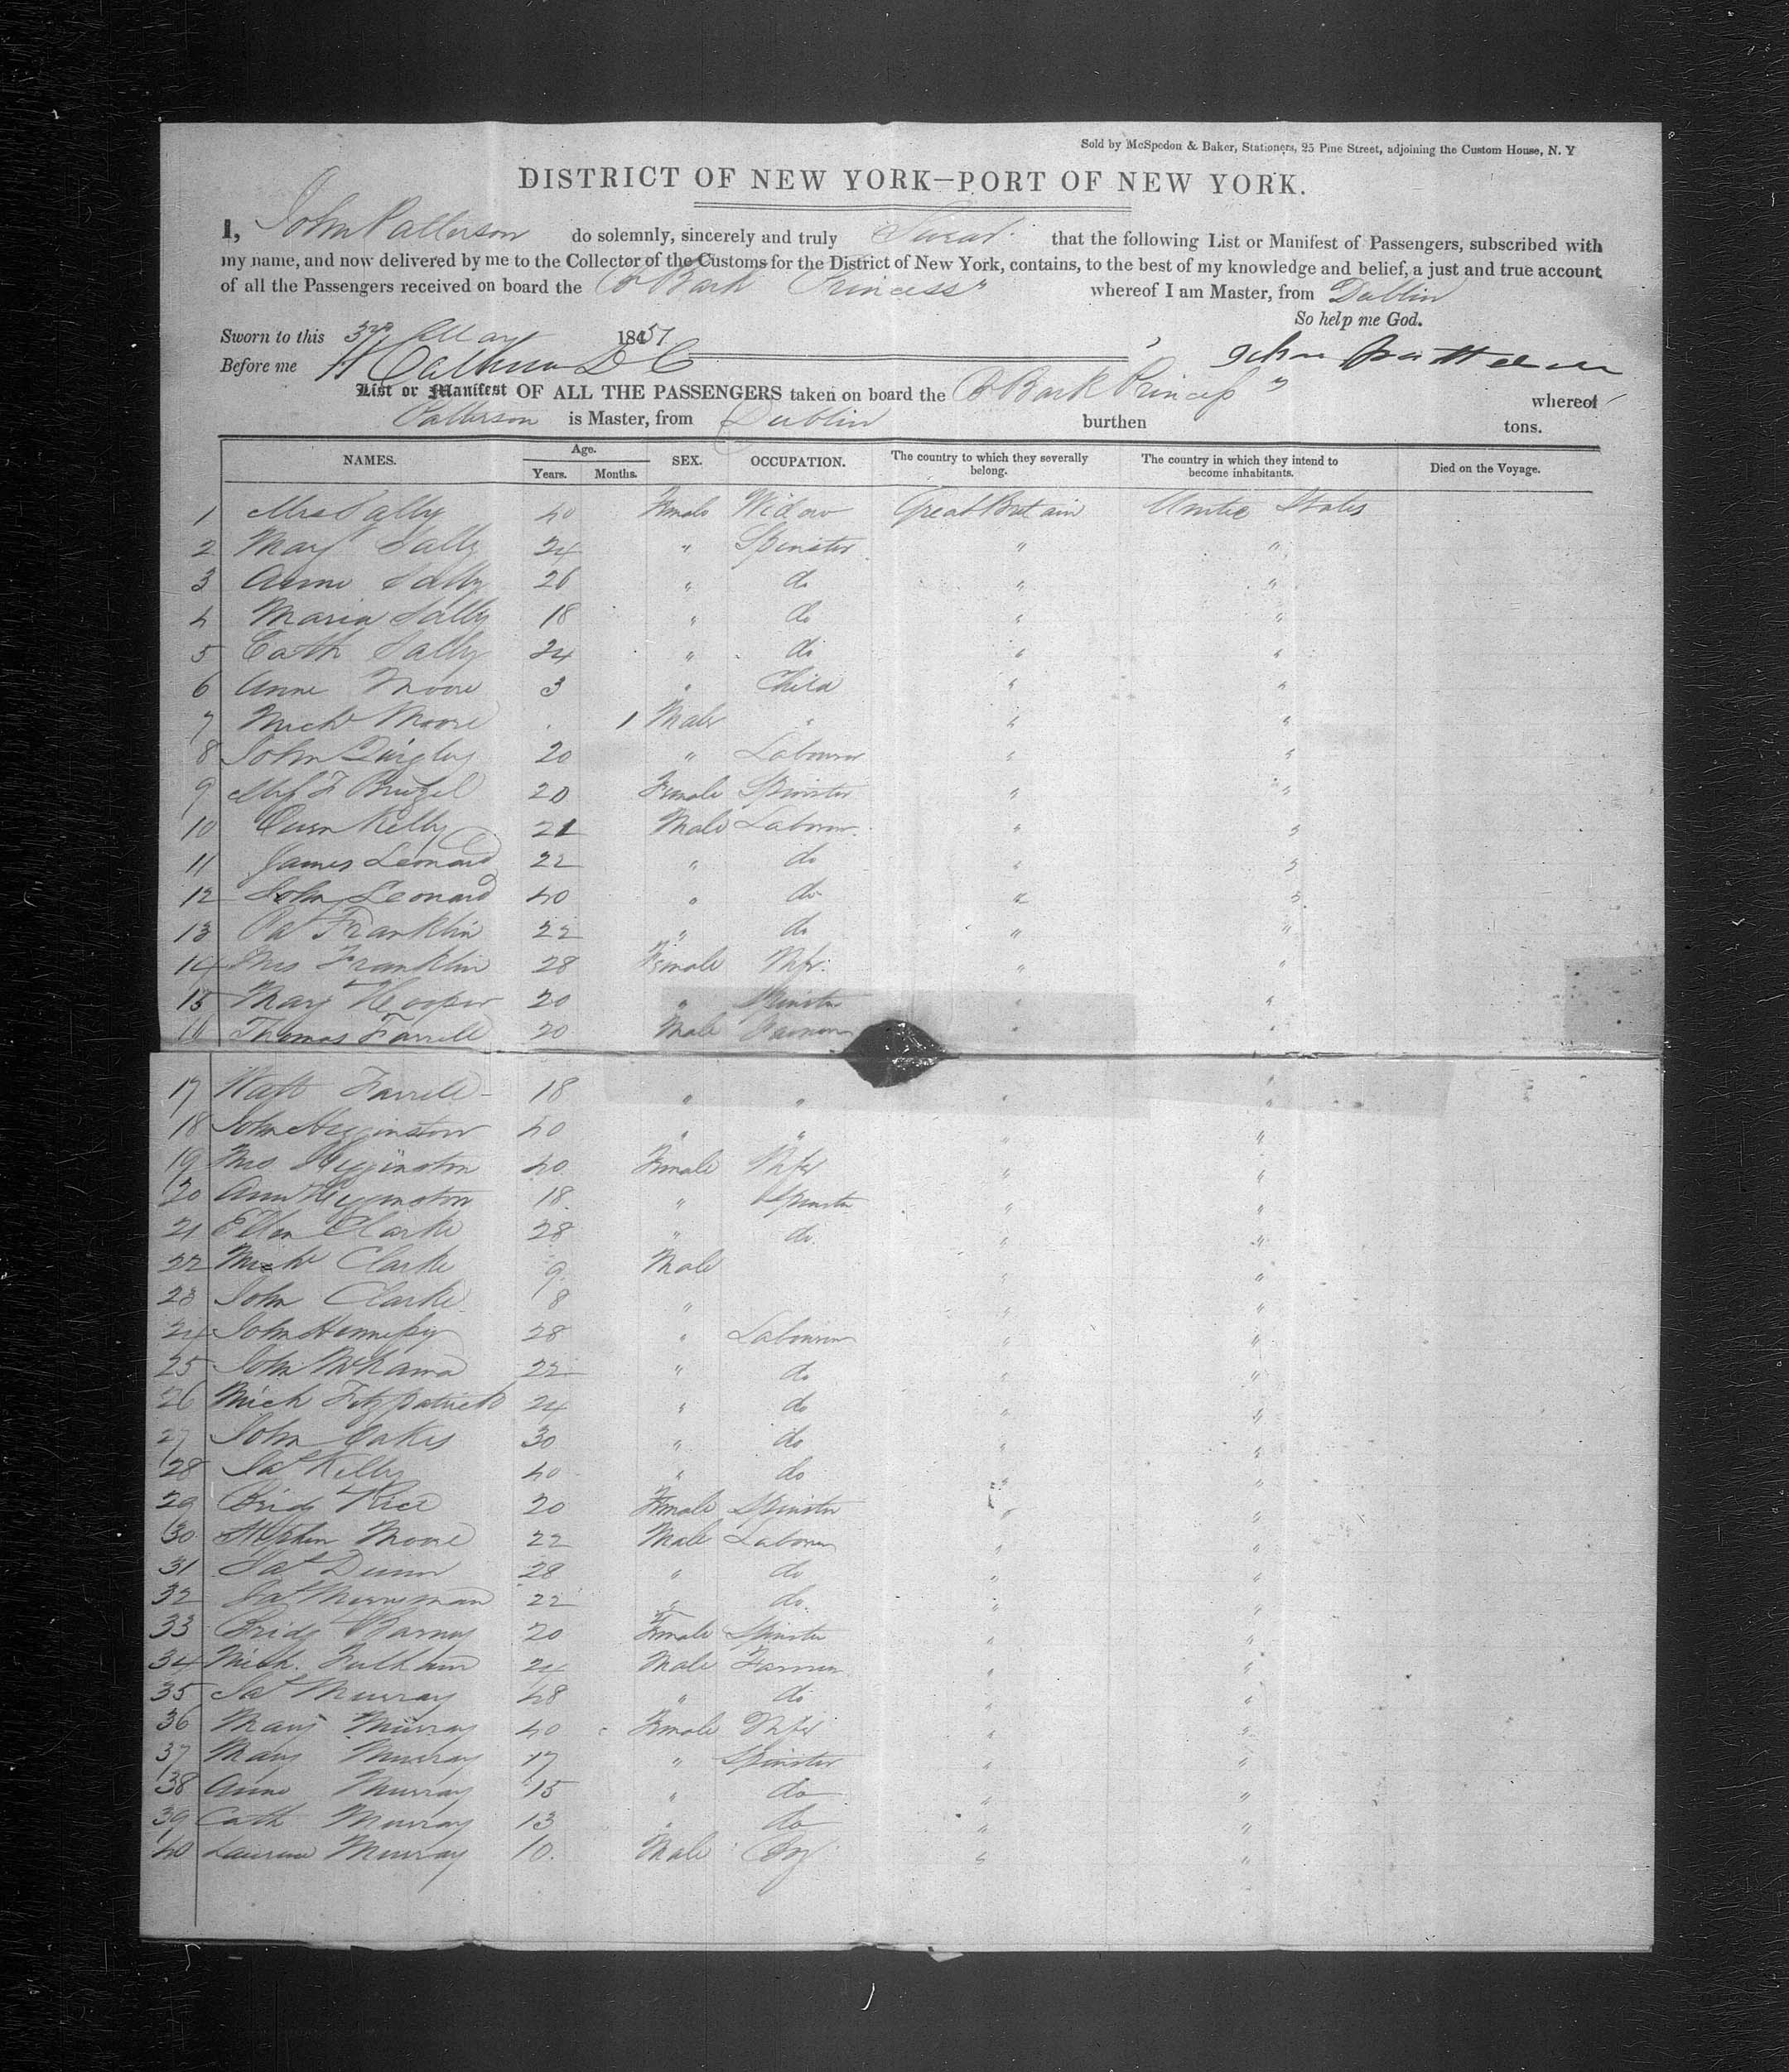 Sold by McSpedon & Baker, Stationers, 25 Pine Street, adjoining the Custom House, N. Y
DISTRICT OF NEW YORK—PORT OF NEW YORK.
I, John Patterson do solemnly, sincerely and truly Swear that the following List or Manifest of Passengers, subscribed with
my name, and now delivered by me to the Collector of the Customs for the District of New York, contains, to the best of my knowledge and belief, a just and true account
of all the Passengers received on board the Br Bark "Princess" whereof I am Master, from Dublin
So help me God.
Sworn to this 3rd May 1851
Before me John Patterson
List or Manifest OF ALL THE PASSENGERS taken on board the Br Bark Princess" whereof
Patterson is Master, from Dublin burthen tons.
NAMES. Age. SEX. OCCUPATION. The country to which they severally belong. The country in which they intend to become inhabitants. Died on the Voyage.
Years. Months.
1 Mrs Lally 40 Female Widow Great Britain United States
2 Mary Lally 24 " Spinster " "
3 Anne Lally 26 " do " "
4 Maria Lally 18 " do " "
5 Cath Lally 24 " do " "
6 Anne Moore 3 " Child " "
7 Michl Moore 1 Male " " "
8 John Quigley 20 " Labourer " "
9 20 Female Spinster " "
10 Owen Kelly 21 Male Labourer " "
11 James Leonard 22 " do " "
12 John Leonard 40 " do " "
13 Pat Franklin 22 " do " "
14 Mrs Franklin 28 Female Wife " "
15 Mary Hooper 20 " Spinster " "
16 Thomas Farrell 20 Male Farmer " "
17 Farrell 18 " " " "
18 John Higginston 40 " " " "
19 Mrs Higginston 40 Female Wife " "
20 Ann Higginston 18 " Spinster " "
21 Ellen Clarke 28 " do " "
22 Michl Clarke 9 Male " "
23 John Clarke 8 " " "
24 John Hennessy 28 " Labourer " "
25 John 22 " do " "
26 Mich Fitzpatrick 24 " do " "
27 John Oakes 30 " do " "
28 Pat Kelly 40 " do " "
29 Bridg Rice 20 Female Spinster " "
30 Stephen Moore 22 Male Labourer " "
31 Pat Dunn 28 " do " "
32 Pat Merryman 22 " do " "
33 Bridg 20 Female Spinster " "
34 Mich. Fulham 24 Male Farmer " "
35 Pat Murray 48 " do " "
36 Mary Murray 40 Female Wife " "
37 Mary Murray 17 " Spinster " "
38 Anne Murray 15 " do " "
39 Cath Murray 13 " do " "
40 Laurence Murray 10 Male Boy " "